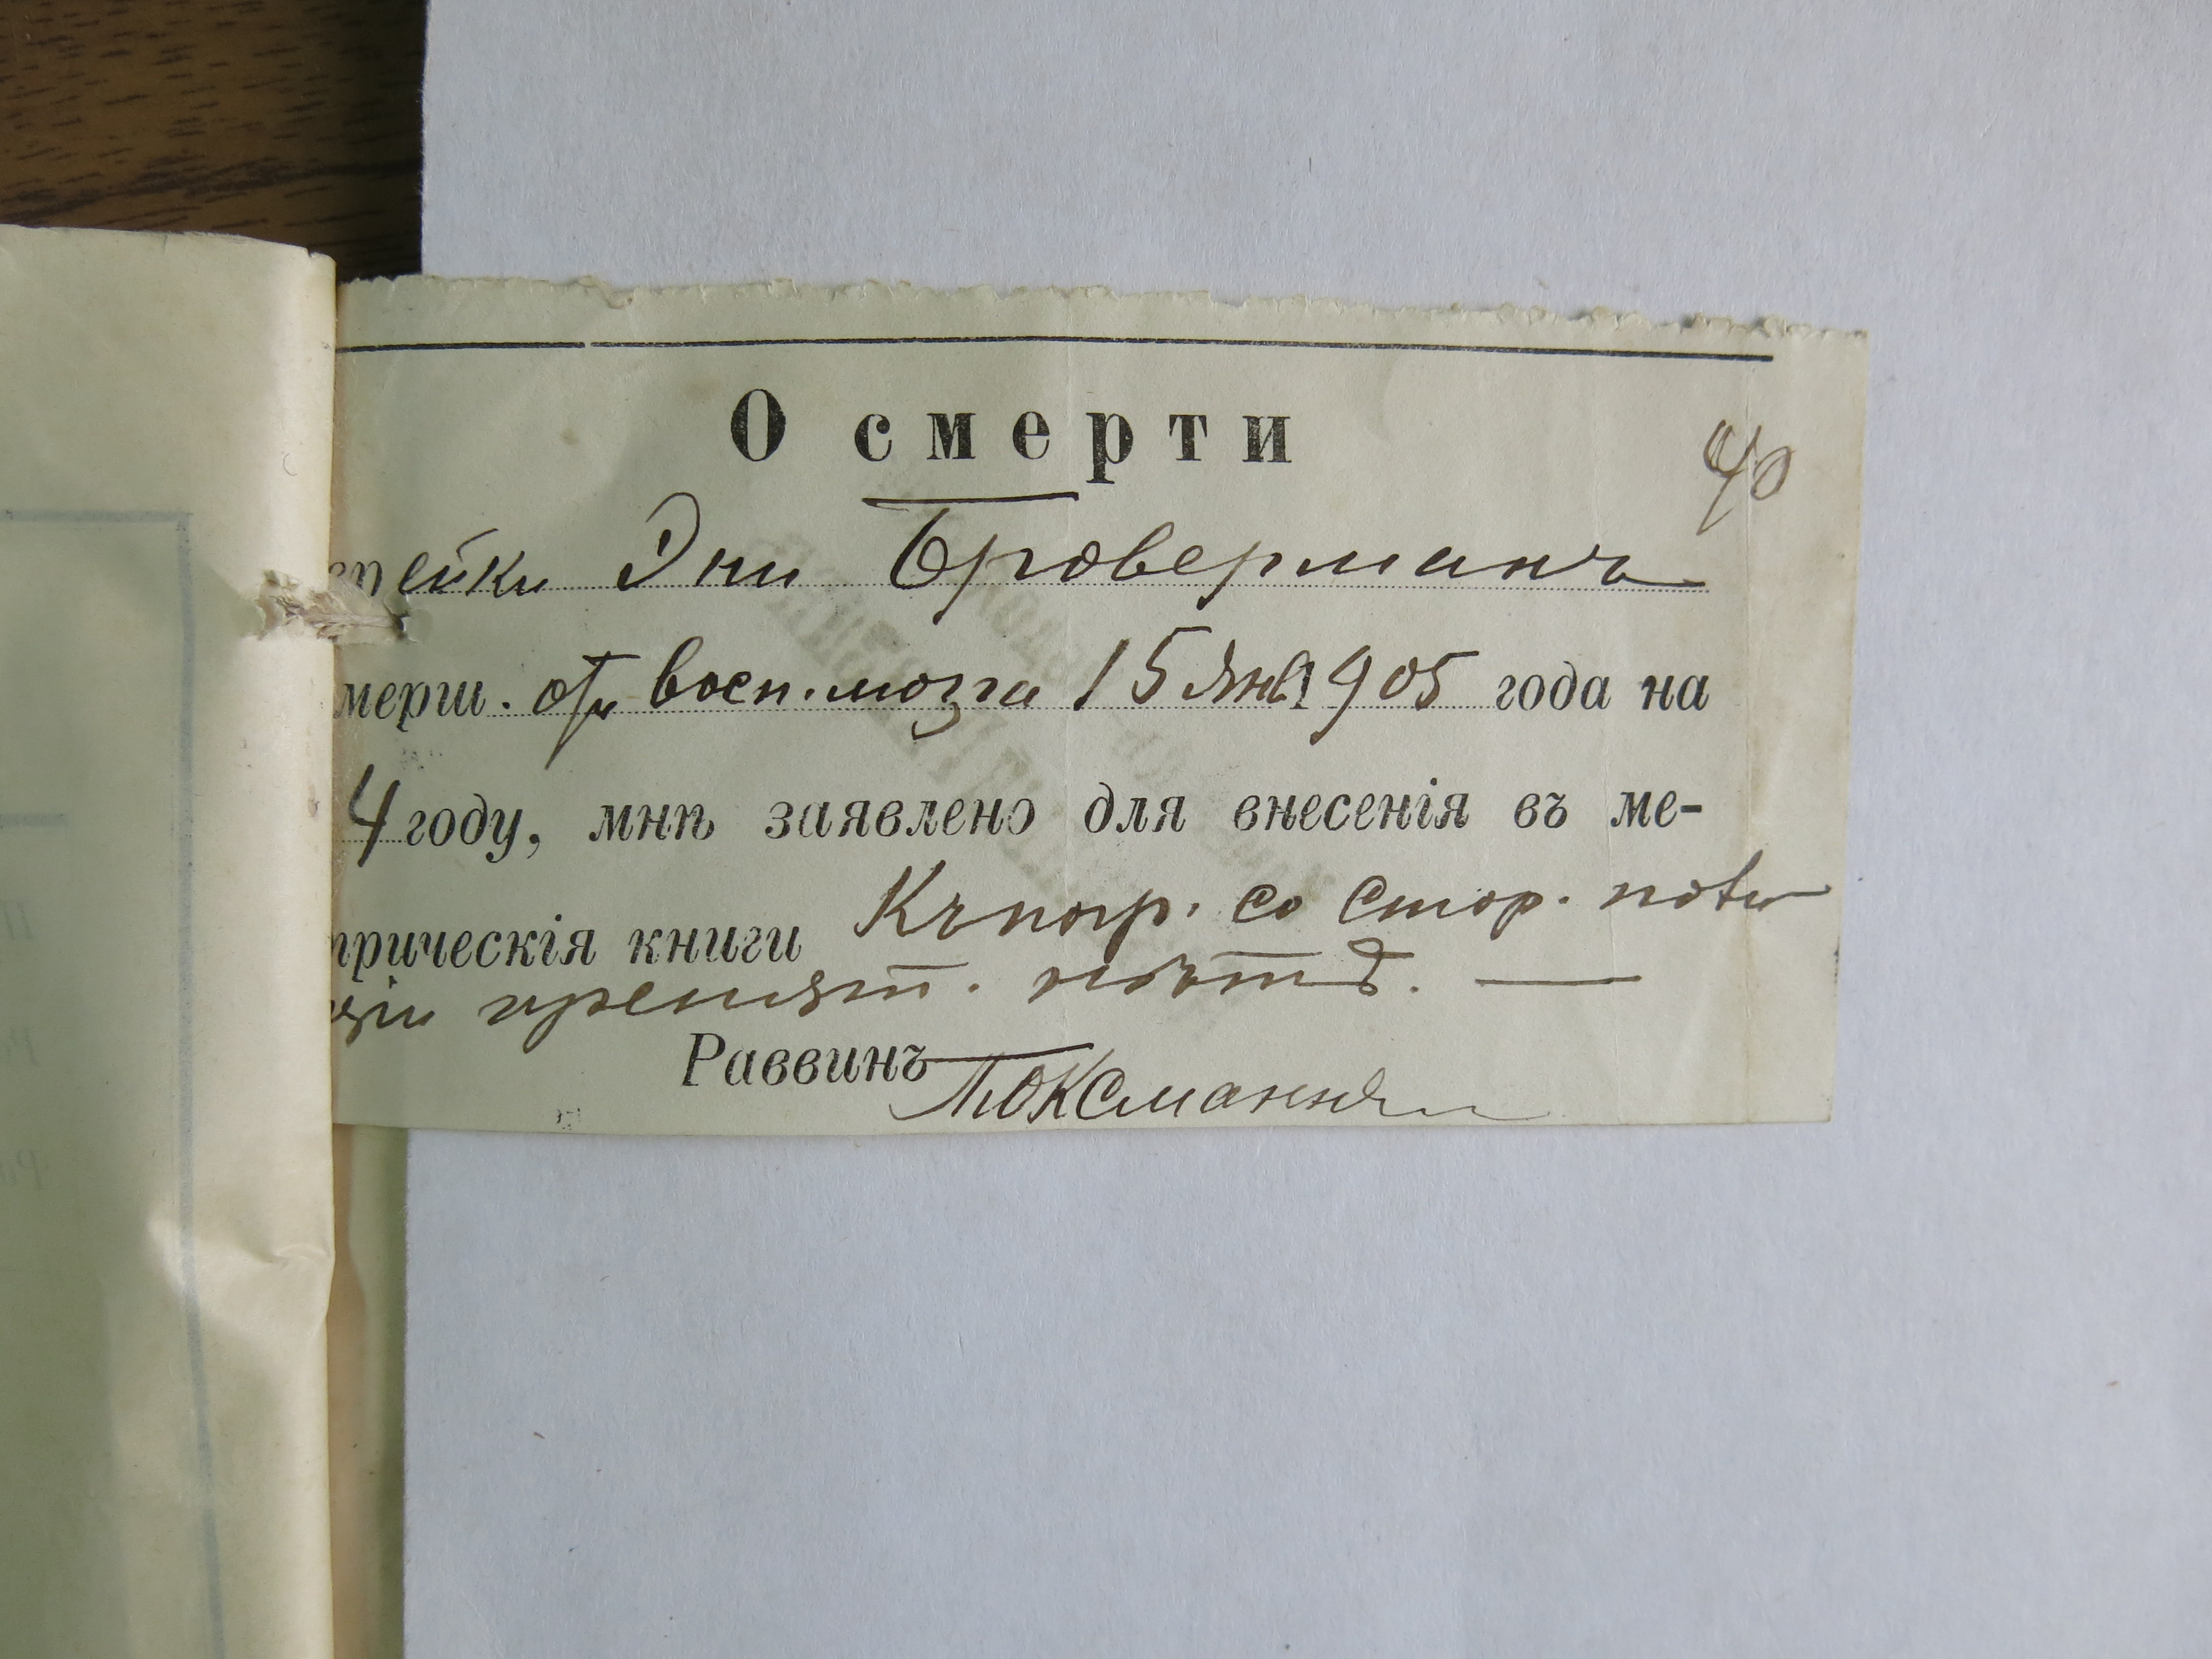 О смерти
40
пейки Эни Броверманъ
мерш. отъ восп. мозга 15 Янв 1905 года на
4 году, мнѣ заявлено для внесенія въ ме-
трическія книги Къ погр. со стор. поли
ціи препят. нѣтъ.
Раввинъ